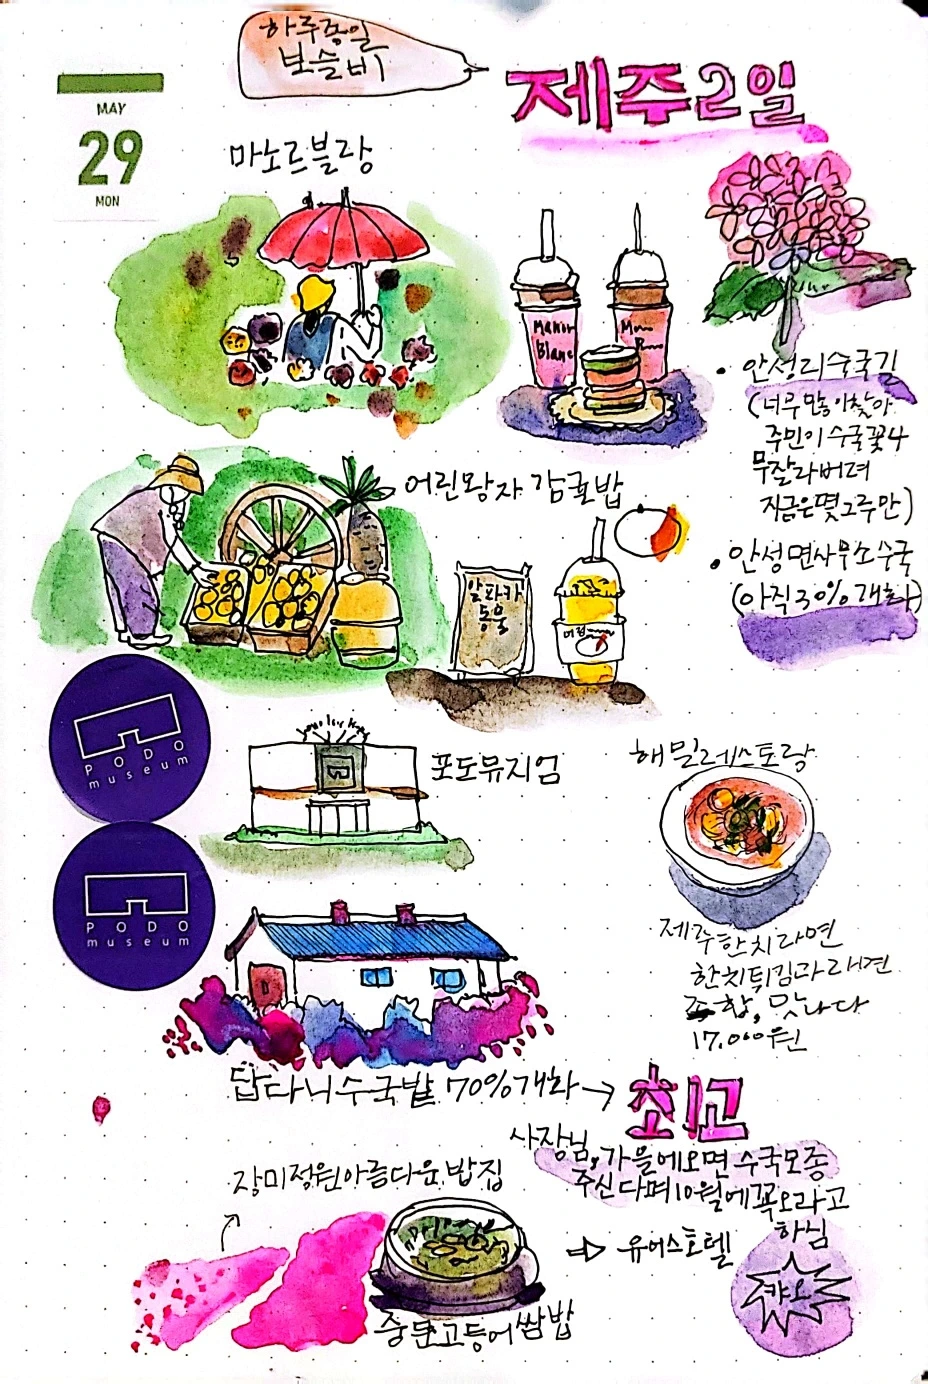 하루종일
보슬비
제주2일
MAY
29
MON
마노르블랑
Manor
Blanc
안성리수국길
(너무많이찾아
주민이 수국꽃나
무잘라버려
지금은몇그루만)
어린왕자 감귤밭
안성면사무소수국
(아직30%개화)
알파카
동물
PODO
museum
포도뮤지엄
해밀레스토랑
PODO
museum
제주한치라면
한치튀김과라면
조합, 맛나다
17,000원
답다니수국밭 70%개화→
최고
사장님, 가을에오면 수국모종
주신다며10월에꼭오라고
하심
장미정원아름다운밥집
⇨ 유어스호텔
캬오
중문고등어쌈밥